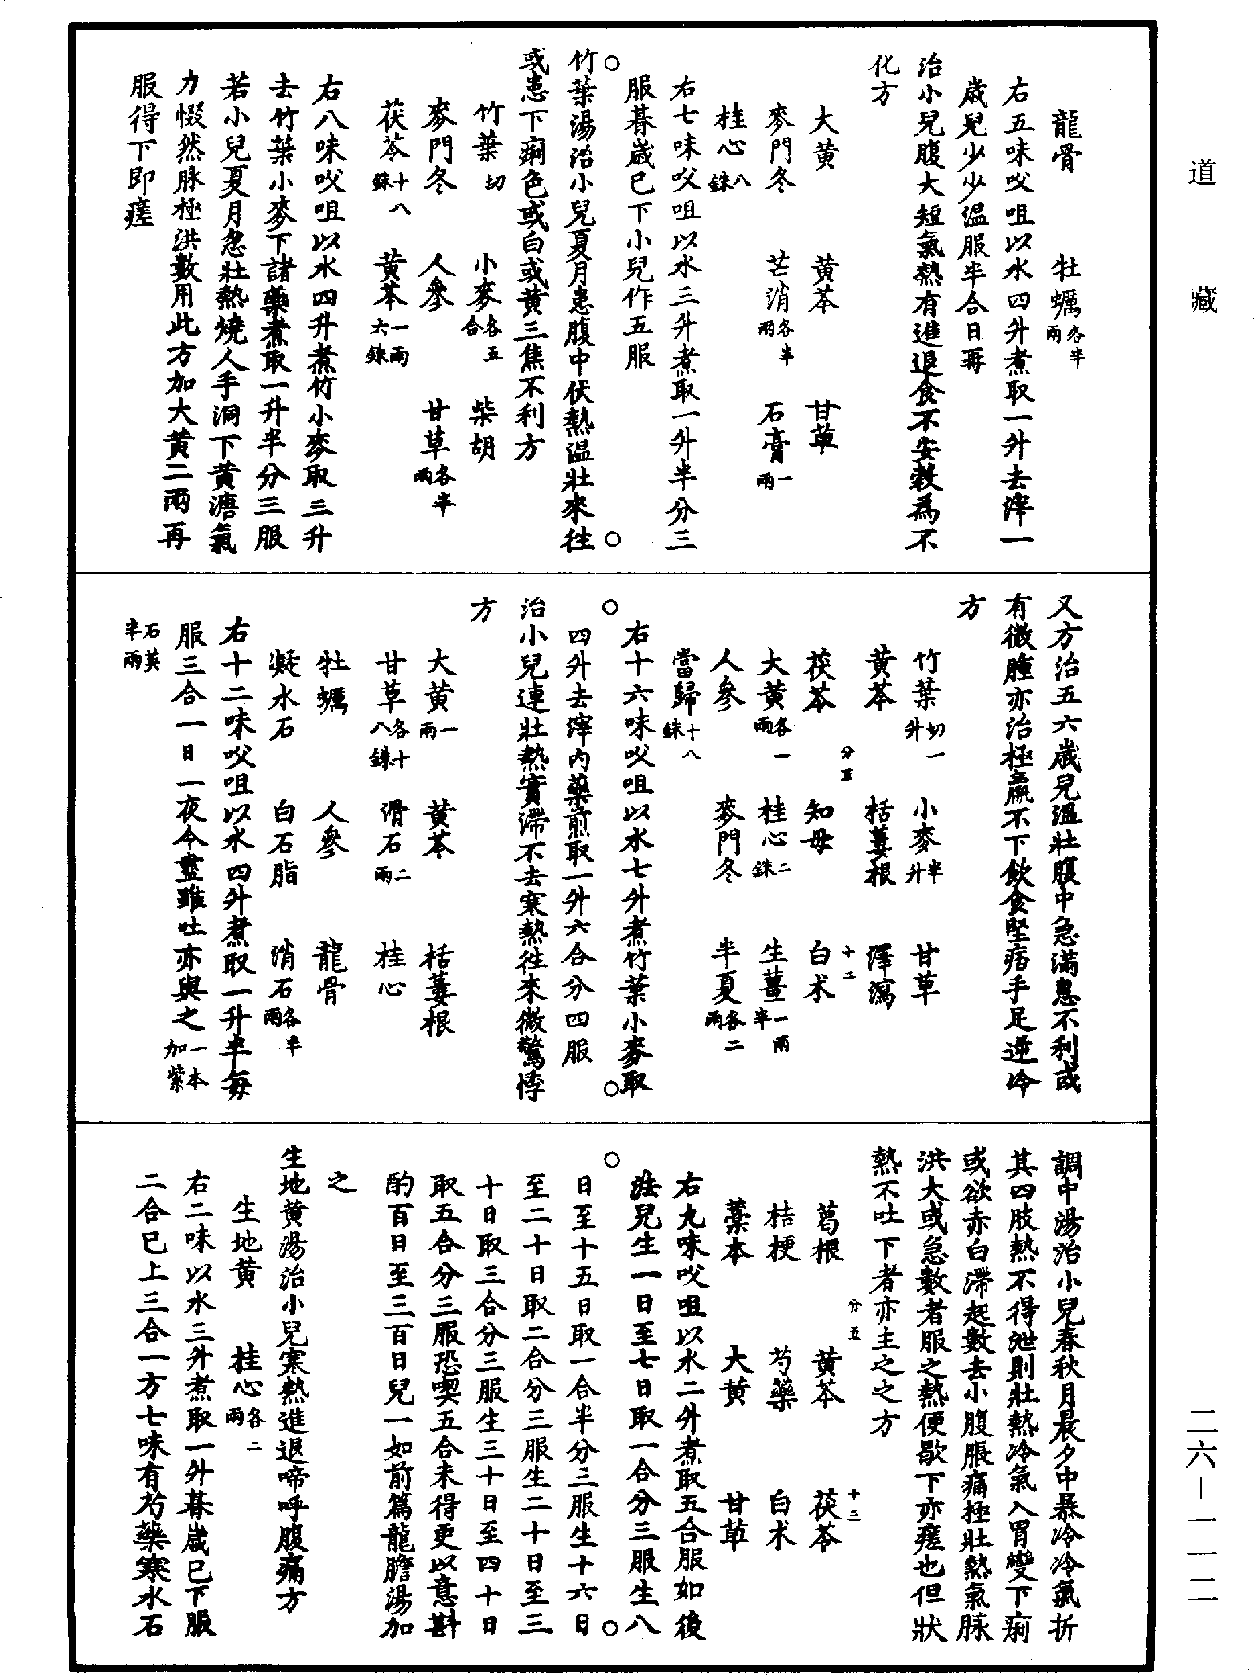 道藏
龍骨 牡蠣各半兩
右五味㕮咀以水四升煮取一升去滓一
歲兒少少溫服半合日再
治小兒腹大短氣熱有進退食不安穀為不
化方
大黃 黃芩 甘草
麥門冬 芒消各半兩 石膏一兩
桂心八銖
右七味㕮咀以水三升煮取一升半分三
服暮歲已下小兒作五服
竹葉湯治小兒夏月患腹中伏熱溫壯來往
或患下痢色或白或黃三焦不利方
竹葉切 小麥各五合 柴胡
麥門冬 人參 甘草各半兩
茯苓十八銖 黃芩一兩六銖
右八味㕮咀以水四升煮竹小麥取三升
去竹葉小麥下諸藥煮取一升半分三服
若小兒夏月忽壯熱燒人手洞下黃溏氣
力惙然脉極洪數用此方加大黃二兩再
服得下即瘥
又方治五六歲兒溫壯腹中急滿息不利或
有微腫亦治極羸不下飲食堅痞手足逆冷
方
竹葉切一升 小麥半升 甘草
黃芩 栝蔞根 澤瀉
茯苓 知母 白朮
大黃各一兩 桂心二銖 生薑一兩半
人參 麥門冬 半夏各二兩
當歸十八銖
分五 十二
右十六味㕮咀以水七升煮竹葉小麥取
四升去滓內藥煎取一升六合分四服
治小兒連壯熱實滯不去寒熱往來微驚悸
方
大黃一兩 黃芩 栝蔞根
甘草各十八銖 滑石二兩 桂心
牡蠣 人參 龍骨
凝水石 白石脂 消石各半兩
右十二味㕮咀以水四升煮取一升半每
服三合一日一夜令盡雖吐亦與之一本加紫
石英半兩
調中湯治小兒春秋月晨夕中暴冷冷氣折
其四肢熱不得泄則壯熱冷氣入胃變下痢
或欲赤白滯起數去小腹脹痛極壯熱氣脉
洪大或急數者服之熱便歇下亦瘥也但狀
熱不吐下者亦主之之方
葛根 黃芩 茯苓
桔梗 芍藥 白朮
藁本 大黃 甘草
分五 十三
右九味㕮咀以水二升煮取五合服如後
法兒生一日至七日取一合分三服生八
日至十五日取一合半分三服生十六日
至二十日取二合分三服生二十日至三
十日取三合分三服生三十日至四十日
取五合分三服恐喫五合未得更以意斟
酌百日至三百日兒一如前篇龍膽湯加
之
生地黃湯治小兒寒熱進退啼呼腹痛方
生地黃 桂心各二兩
右二味以水三升煮取一升暮歲已下服
二合已上三合一方七味有芍藥寒水石
二六—一一二